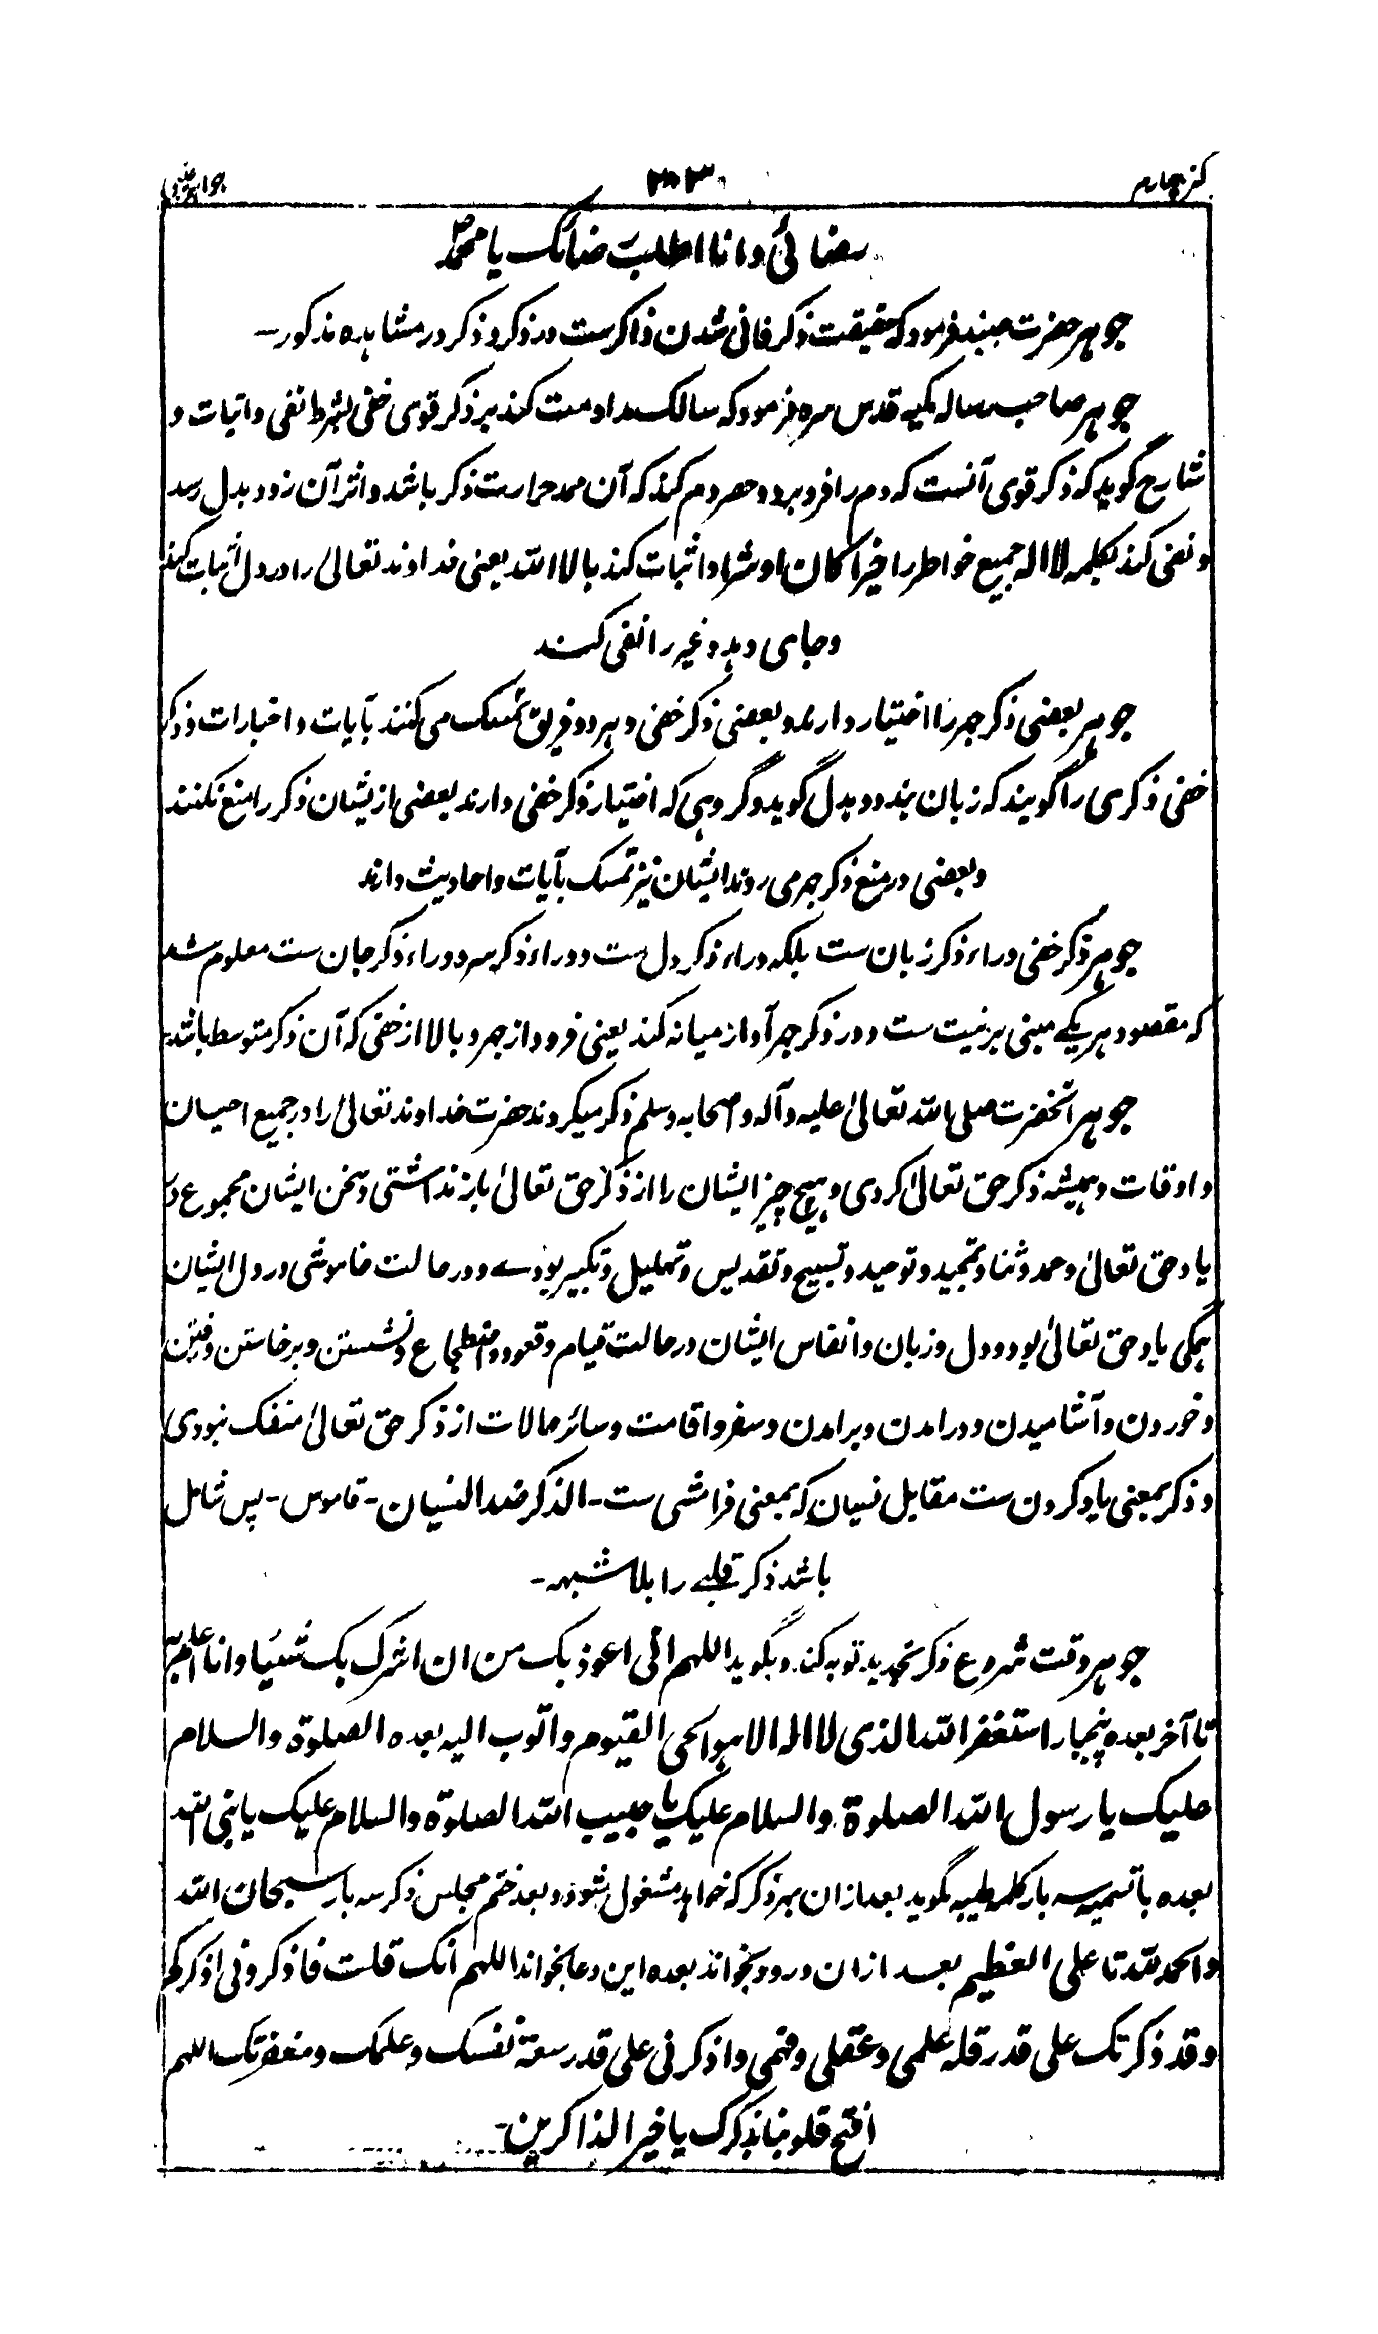 کنز چهارم ۲۸۳ جواهر غیبی
رضائی وانا اطلب رضائک یا محمد
جوهر حضرت جنید فرمود که حقیقت ذکر فانی شدن ذاکرست در ذکر و ذکر در مشاهده مذکور-
جوهر صاحب رساله مکیه قدس سره فرمود که سالک مداومت کند بر ذکر قوی خفی بشرط نفی و اثبات و
شارح گوید که ذکر قوی آنست که دم را فرو برد و حصر دم کند که آن ممد حرارت ذکر باشد و اثر آن زود بدل رسد
و نفی کند بکلمه لااله جمیع خواطر را خیرا کان او شرا و اثبات کند بالاالله یعنی خداوند تعالیٰ را در دل اثبات کند
و جای دهد و غیر را نفی کند
جوهر بعضی ذکر جهر را اختیار دارند و بعضی ذکر خفی و هر دو فریق تمسک می کنند بآیات و اخبارات و ذکر
خفی ذکری را گویند که زبان بندد و بدل گوید و گروهی که اختیار ذکر خفی دارند بعضی از یشان ذکر را منع نکنند
و بعضی در منع ذکر جهر می روند ایشان نیز تمسک بآیات و احادیث دارند
جوهر ذکر خفی وراء ذکر زبان ست بلکه وراء ذکر دل ست و وراء ذکر سر و وراء ذکر جان ست معلوم شد
که مقصود هر یکے مبنی بر نیت ست و در ذکر جهر آواز میانه کند یعنی فرود از جهر و بالا از خفی که آن ذکر متوسط باشد-
جوهر آنحضرت صلی الله تعالیٰ علیه و آله و اصحابه و سلم ذکر میکردند حضرت خداوند تعالیٰ را در جمیع احیان
و اوقات و همیشه ذکر حق تعالیٰ کردی و هیچ چیز ایشان را از ذکر حق تعالیٰ باز نداشتی و سخن ایشان مجموع در
یاد حق تعالیٰ و حمد و ثنا و تمجید و توحید و تسبیح و تقدیس و تهلیل و تکبیر بودے و در حالت خاموشی در دل ایشان
همگی یاد حق تعالیٰ بود و دل و زبان و انفاس ایشان در حالت قیام و قعود و اضطجاع و نشستن و برخاستن و رفتن
و خوردن و آشامیدن و درامدن و برامدن و سفر و اقامت و سائر حالات از ذکر حق تعالیٰ منفک نبودی
و ذکر بمعنی یاد کردن ست مقابل نسیان که بمعنی فرامشی ست- الذکر ضد النسیان- قاموس- پس شامل
باشد ذکر قلبے را بلا شبهه-
جوهر وقت شروع ذکر تجدید توبه کند و بگوید اللهم انی اعوذ بک من ان اشرک بک شیئا وانا اعلم به
تا آخر بعده پنجبار استغفر الله الذی لا اله الا هو الحی القیوم و اتوب الیه بعده الصلوة والسلام
علیک یا رسول الله الصلوة والسلام علیک یا حبیب الله الصلوة والسلام علیک یا نبی الله
بعده با تسمیه سه بار کلمه طیبه بگوید بعد ازان بهر ذکر که خواهد مشغول شود و بعد ختم مجلس ذکر سه بار سبحان الله
والحمد لله تا علی العظیم بعد ازان درود بخواند بعده این دعا بخواند اللهم انک قلت فاذکرونی اذکرکم
وقد ذکرتک علی قدر قلة علمی و عقلی و فهمی واذکرنی علی قدر سعة نفسک و علمک و مغفرتک اللهم
افتح قلوبنا بذکرک یا خیر الذاکرین-